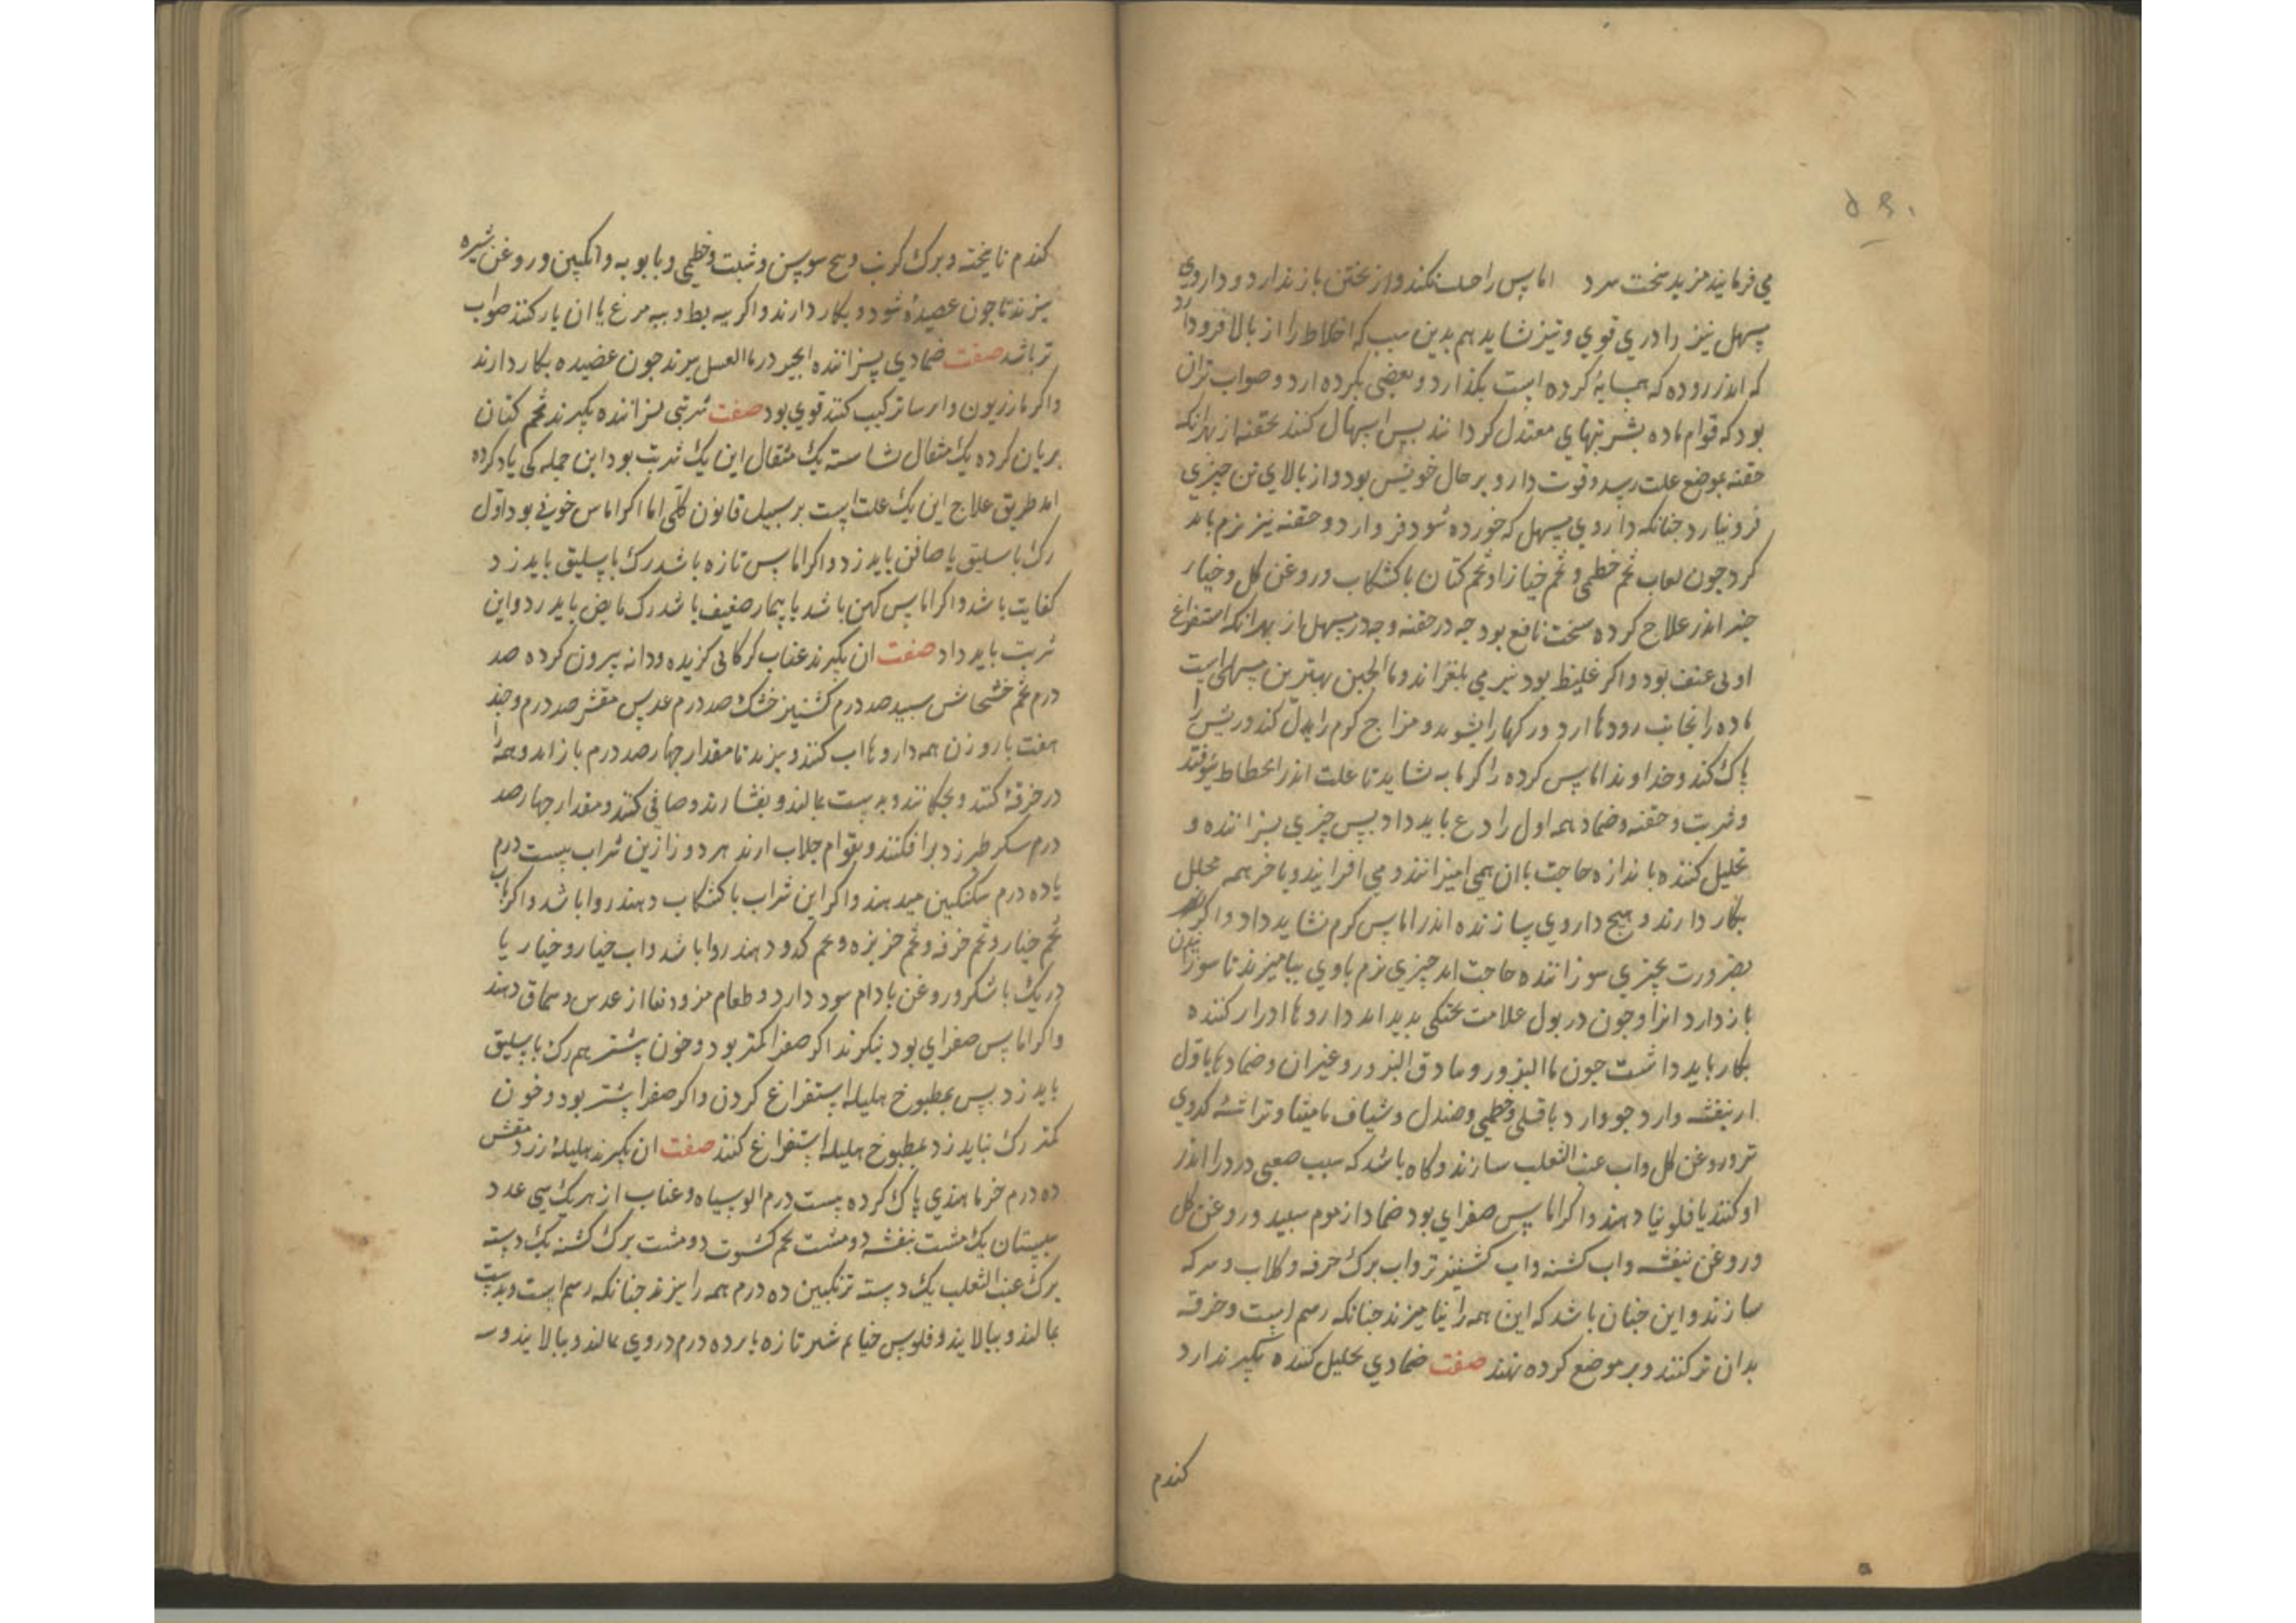 می فرمایند مزید سخت سرد اماس را صلب نکند و از پختن باز ندارد و داروی
مسهل نیز را دری قوی و تیز نشاید هم بدین سبب که اخلاط را از بالا فرود ارد
که اندر روده که همسایهٔ کرده است بکذارد و بعضی بکرده ارد و صواب تر ان
بود که قوام ماده بشربتهای معتدل کردانند پس اسهال کنند بحقنه از بهر انکه
حقنه بموضع علت رسد و قوت دارو بر حال خویش بود و از بالای تن چیزی
فرو نیارد جنانکه داروی مسهل که خورده شود فرو ارد و حقنه نیز نرم باید
کرد جون لعاب تخم خطمی و تخم خیار و تخم کتان با کشکاب و روغن کل و خیار
جنبر اندر علاج کرده سخت نافع بود جه در حقنه و جه در مسهل از بهر انکه استفراغ
او بی عنف بود و اکر غلیظ بود نیز می بلغزاند و ماالجبن بهترین مسهلی است
ماده را بجانب رودها ارد و رکها را بشوید و مزاج کرم را بدل کند و ریش را
پاک کند و خداوند اماس کرده را کرمابه نشاید تا علت اندر انحطاط نیوفتد
و شربت و حقنه و ضماد همه اول رادع باید داد پس چیزی پزاننده و
تحلیل کننده باندازه حاجت با ان همی امیزانند و می افزایند و باخر همه محلل
بکار دارند و هیچ داروی سازنده اندر اماس کرم نشاید داد و اکر
بضرورت بچیزی سوزاننده حاجت اید چیزی نرم با وی بیامیزند تا سوزانیدن
باز دارد انرا و جون در بول علامت پختکی پدید اید داروها ادرار کننده
بکار باید داشت جون ماالبزور و مادق البزور و غیر ان و ضمادها باول
از بنفشه و ارد جو و ارد باقلی و خطمی و صندل و شیاف مامیثا و تراشهٔ کدوی
تر و روغن کل و اب عنب الثعلب سازند و کاه باشد که سبب صعبی درد را اندر
او کنند یا فلونیا دهند و اکر اماس صفرای بود ضماد از موم سپید و روغن کل
و روغن بنفشه و اب کشنه و اب کشنیز تر و اب برک خرفه و کلاب و سرکه
سازند و این جنان باشد که این همه را بیامیزند جنانکه رسم است و خرقه
بدان تر کنند و بر موضع کرده نهند صفت ضمادی تحلیل کننده بکیرند ارد
کندم
کندم نا پخته و برک کرنب و بیخ سوسن و شبت و خطمی و بابونه و انکبین و روغن شیره
بپزند تا جون عصیده شود و بکار دارند و اکر پیه بط و پیه مرغ با ان یار کنند صواب
تر باشد صفت ضمادی پزاننده انجیر در ماالعسل بپزند جون عصیده بکار دارند
و اکر مازریون و ارسا ترکیب کنند قوی بود صفت شربتی پزاننده بکیرند تخم کتان
بریان کرده یک مثقال نشاسته یک مثقال این یک شربت بود این جمله کی یاد کرده
امد طریق علاج این یک علت است بر سبیل قانون کلی اما اکر اماس خونی بود اول
رک باسلیق یا صافن باید زد و اکر اماس تازه باشد رک باسلیق باید زد
کفایت باشد و اکر اماس کهن باشد یا بیمار ضعیف باشد رک مابض باید زد و این
شربت باید داد صفت ان بکیرند عناب کرکانی کزیده و دانه بیرون کرده صد
درم تخم خشخاش سپید صد درم کشنیز خشک صد درم عدس مقشر صد درم و جند
هفت بار وزن همه داروها اب کنند و بپزند تا مقدار جهار صد درم باز اید و همه را
در خرقهٔ کنند و بجکانند و بدست بمالند و بفشارند و صافی کنند و مقدار جهار صد
درم سکر طبرزد برافکنند و بقوام جلاب ارند هر روز ازین شراب بیست درم
یا ده درم سکنکبین میدهند و اکر این شراب با کشکاب دهند روا باشد و اکر با اب
تخم خیار و تخم خرفه و تخم خربزه و تخم کدو دهند روا باشد و اب خیار و خیار یا
دریک با شکر و روغن بادام سود دارد و طعام مزورنها از عدس و سماق دهند
و اکر اماس صفرای بود بنکرند اکر صفرا کمتر بود و خون بیشتر هم رک باسلیق
باید زد پس بمطبوخ هلیله استفراغ کردن و اکر صفرا بیشتر بود و خون
کمتر رک نباید زد بمطبوخ هلیله استفراغ کنند صفت ان بکیرند هلیلهٔ زرد مقشر
ده درم خرما هندی پاک کرده بیست درم الو سیاه و عناب از هر یک سی عدد
سپستان یک مشت بنفشه دو مشت تخم کشوث دو مشت برک کشنه یک دسته
برک عنب الثعلب یک دسته ترنکبین ده درم همه را بپزند جنانکه رسم است و بدست
بمالند و بپالایند و فلوس خیار شنبر تازه پانزده درم در وی بمالند و بپالایند و سه